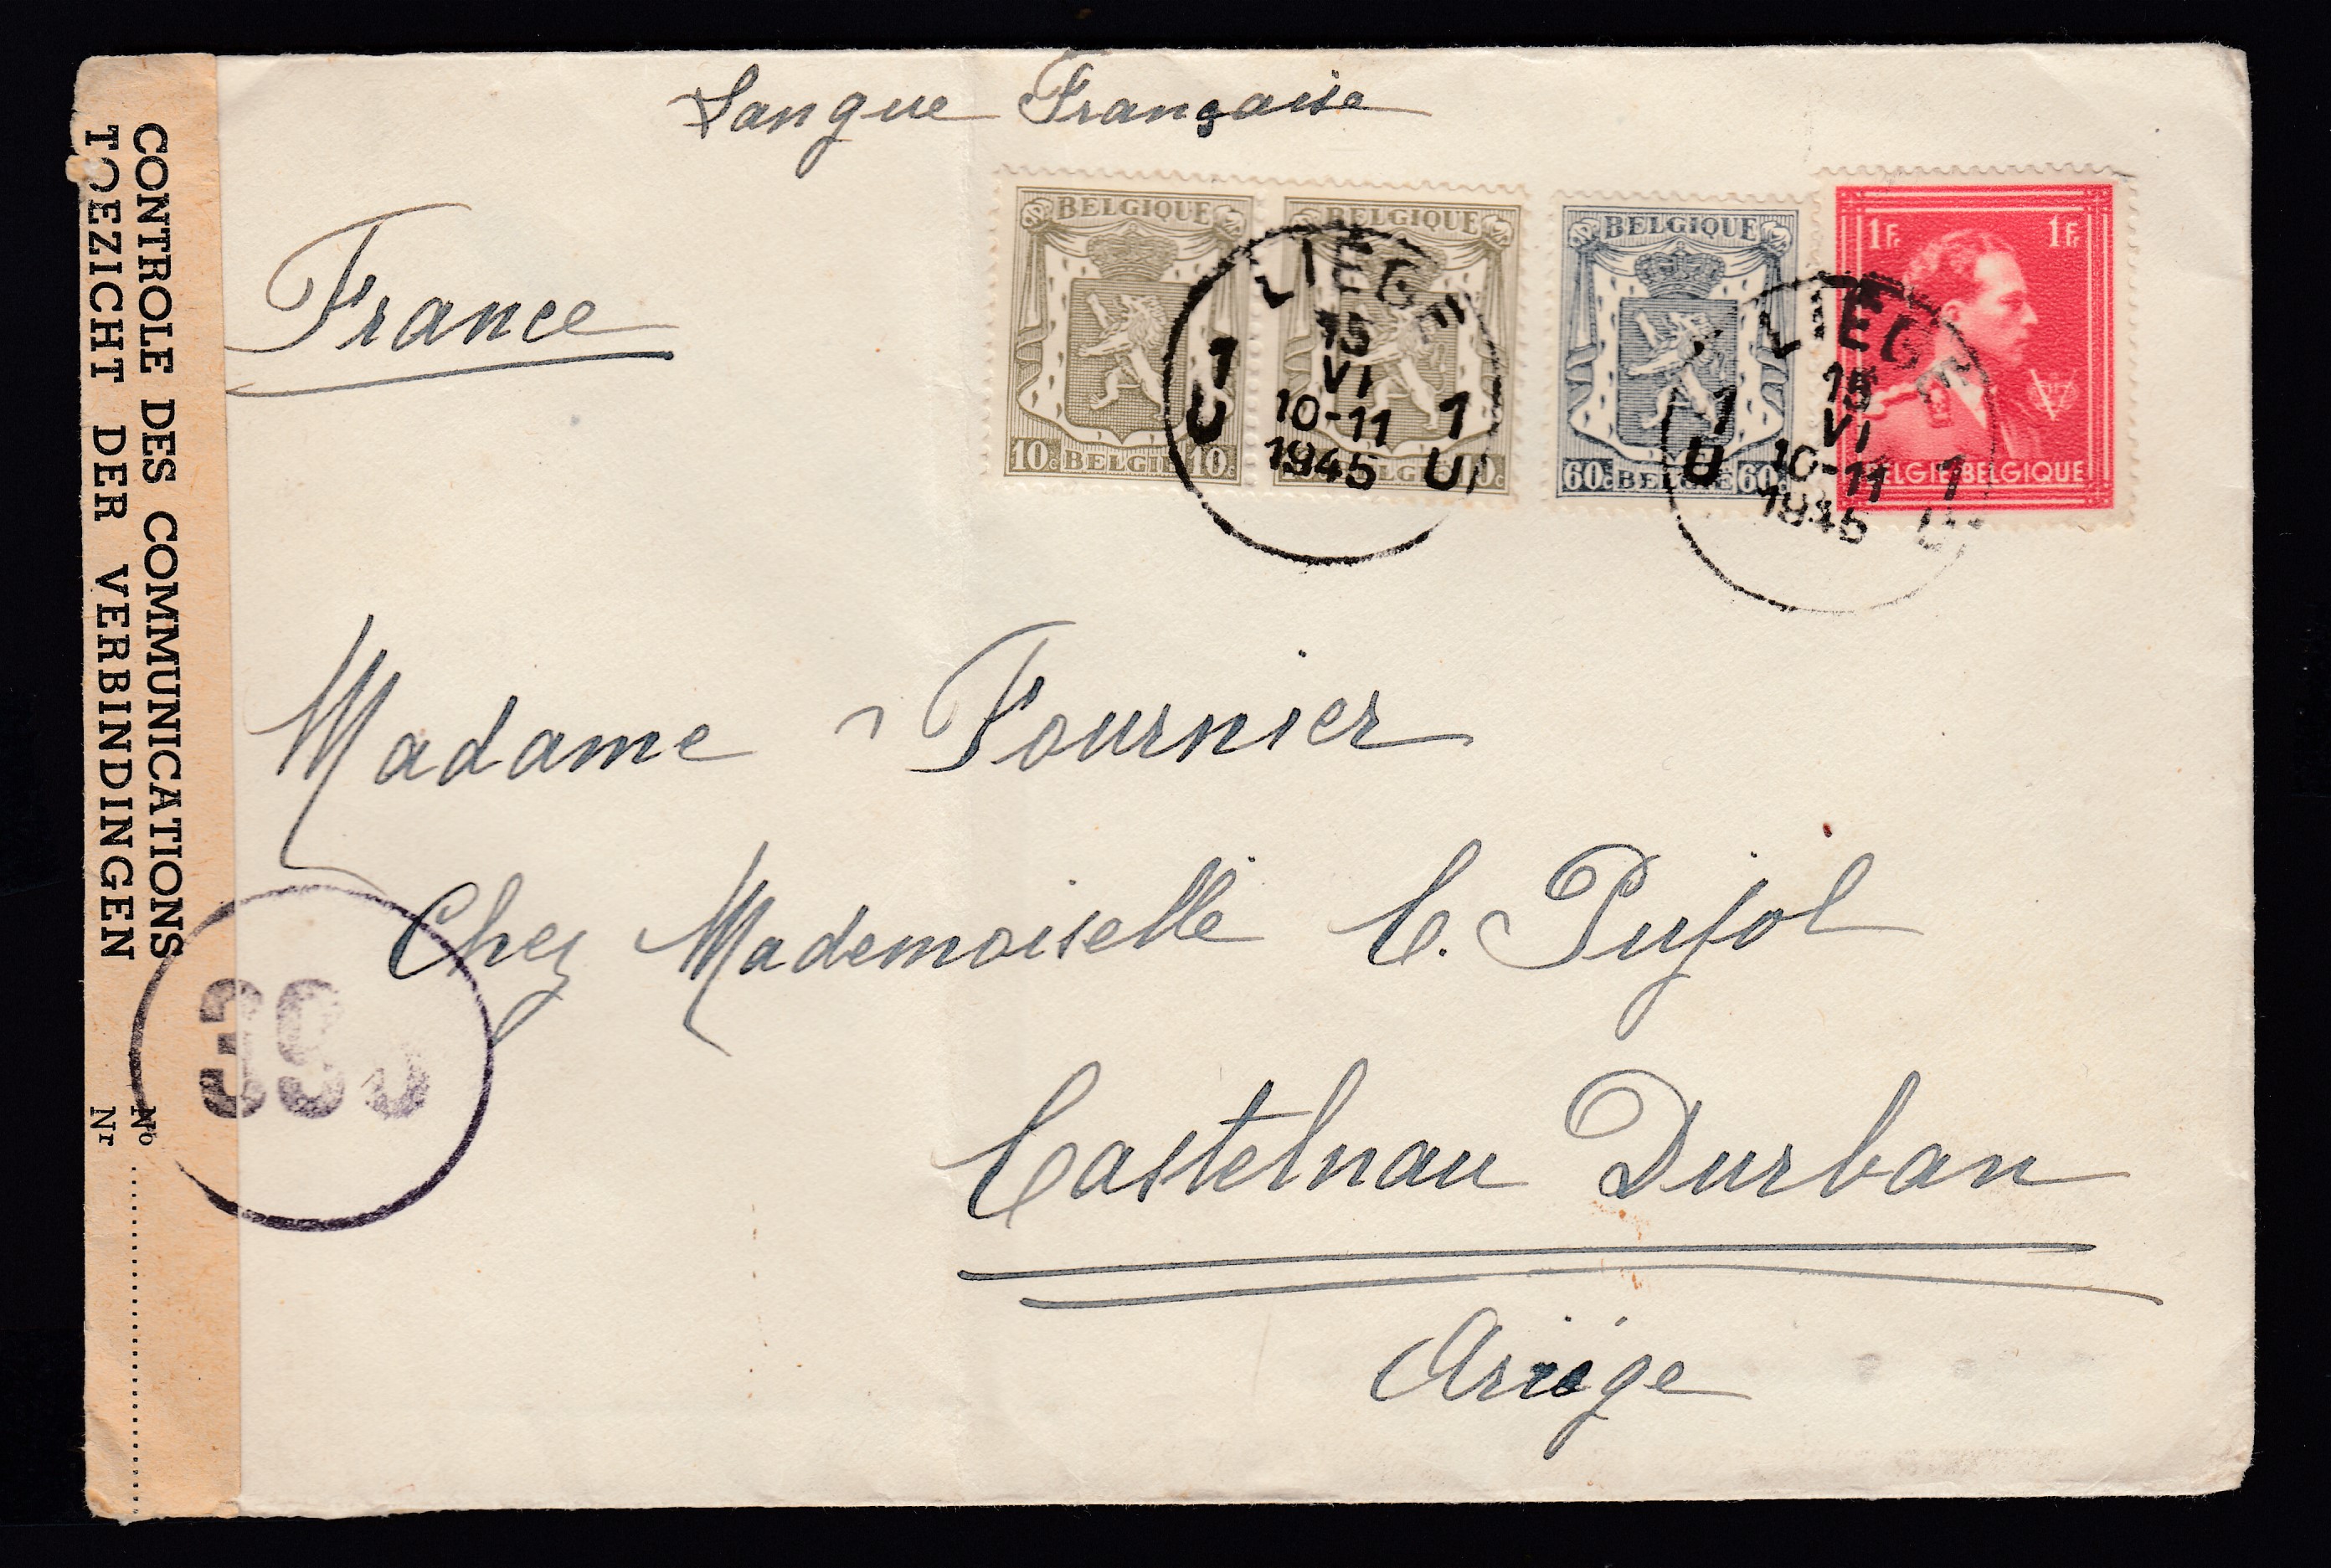 Langue Française
CONTROLE DES COMMUNICATIONS Nº
TOEZICHT DER VERBINDINGEN Nr
France
BELGIQUE
10c BELGIE 10c
BELGIQUE
BELGIQUE
60c BELGIE 60c
1Fr 1Fr
BELGIE BELGIQUE
LIEGE
15
VI
10-11
1945
1 U 1 U
LIEGE
15
VI
10-11
1945
1 U 1 U
Madame Fournier
Chez Mademoiselle C. Pujol
Castelnau Durban
Ariége